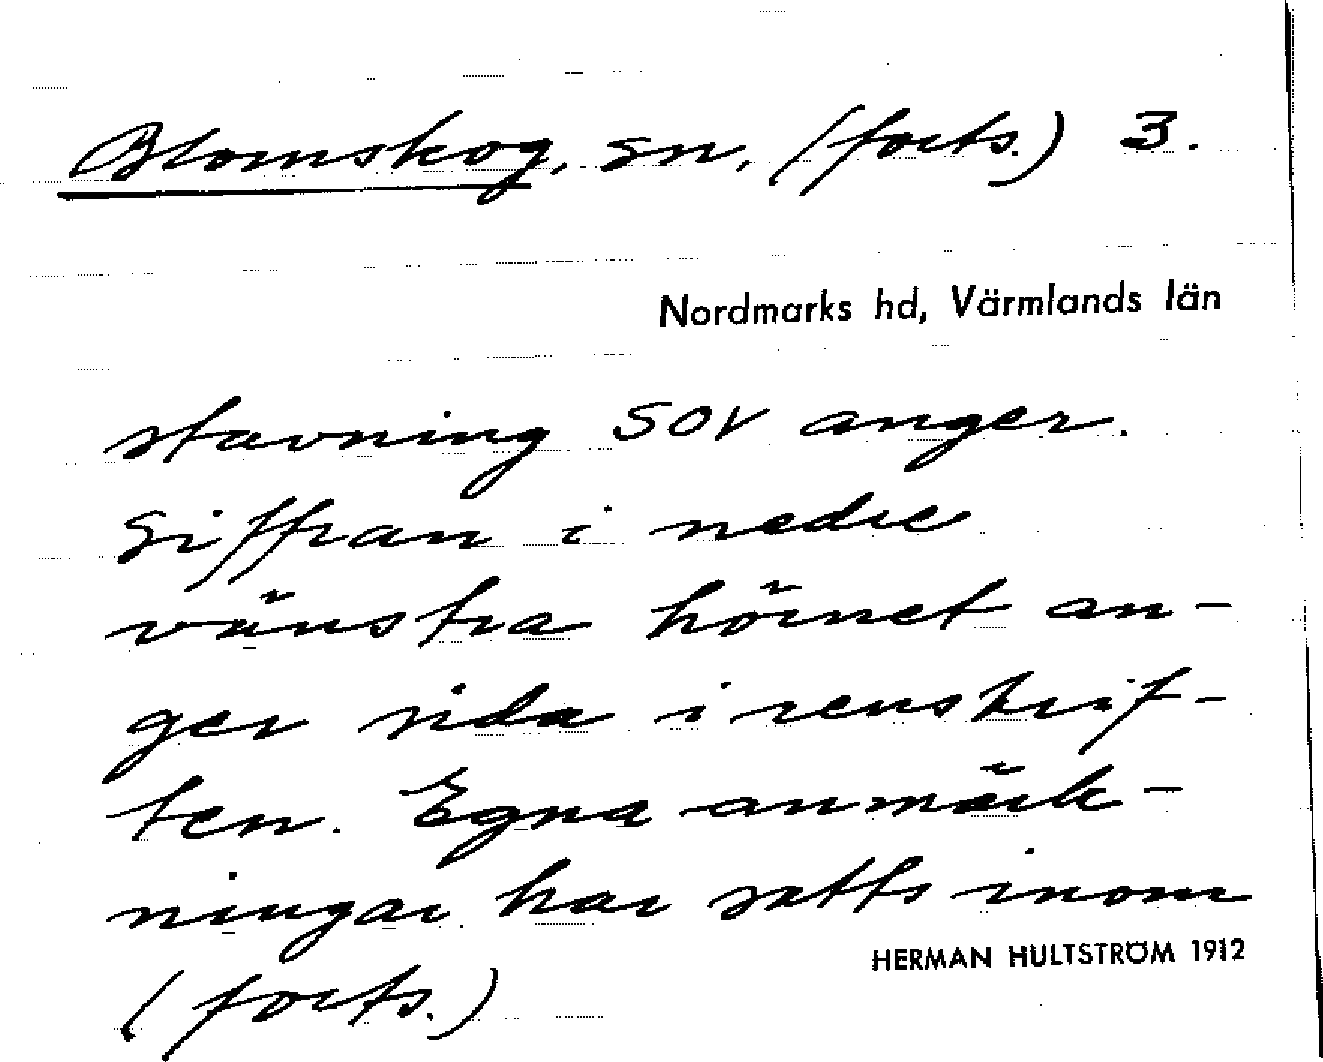 Blomskog, sn, (forts.) 3.
Nordmarks hd, Värmlands län
stavning SOV anger.
Siffran i nedre
vänstra hörnet an-
ger sida i renskrif-
ten. Egna anmärk-
ningar har satts inom
HERMAN HULTSTRÖM 1912
(forts.)